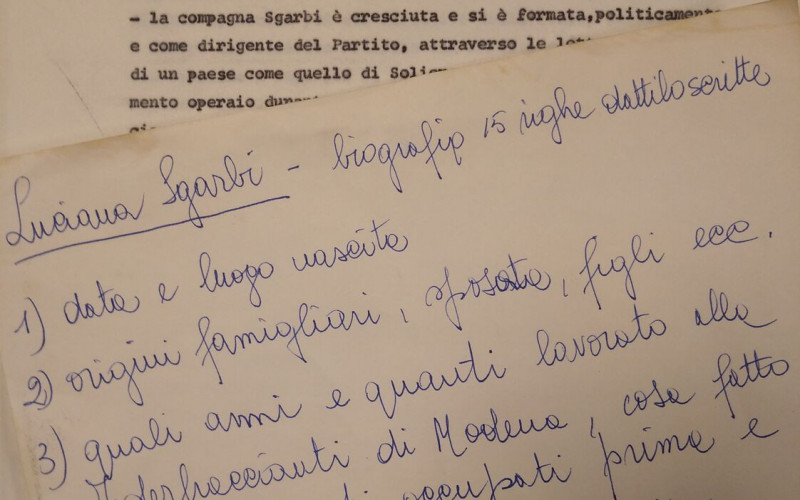 - la compagna Sgarbi è cresciuta e si è formata,politicamente
e come dirigente del Partito, attraverso le
di un paese come quello di
mento operaio
Luciana Sgarbi - biografia 15 righe dattiloscritte
1) data e luogo nascita
2) origini famigliari, sposata, figli ecc.
3) quali anni e quanti lavorato alla
Federbraccianti di Modena, cosa fatto
occupati prima e